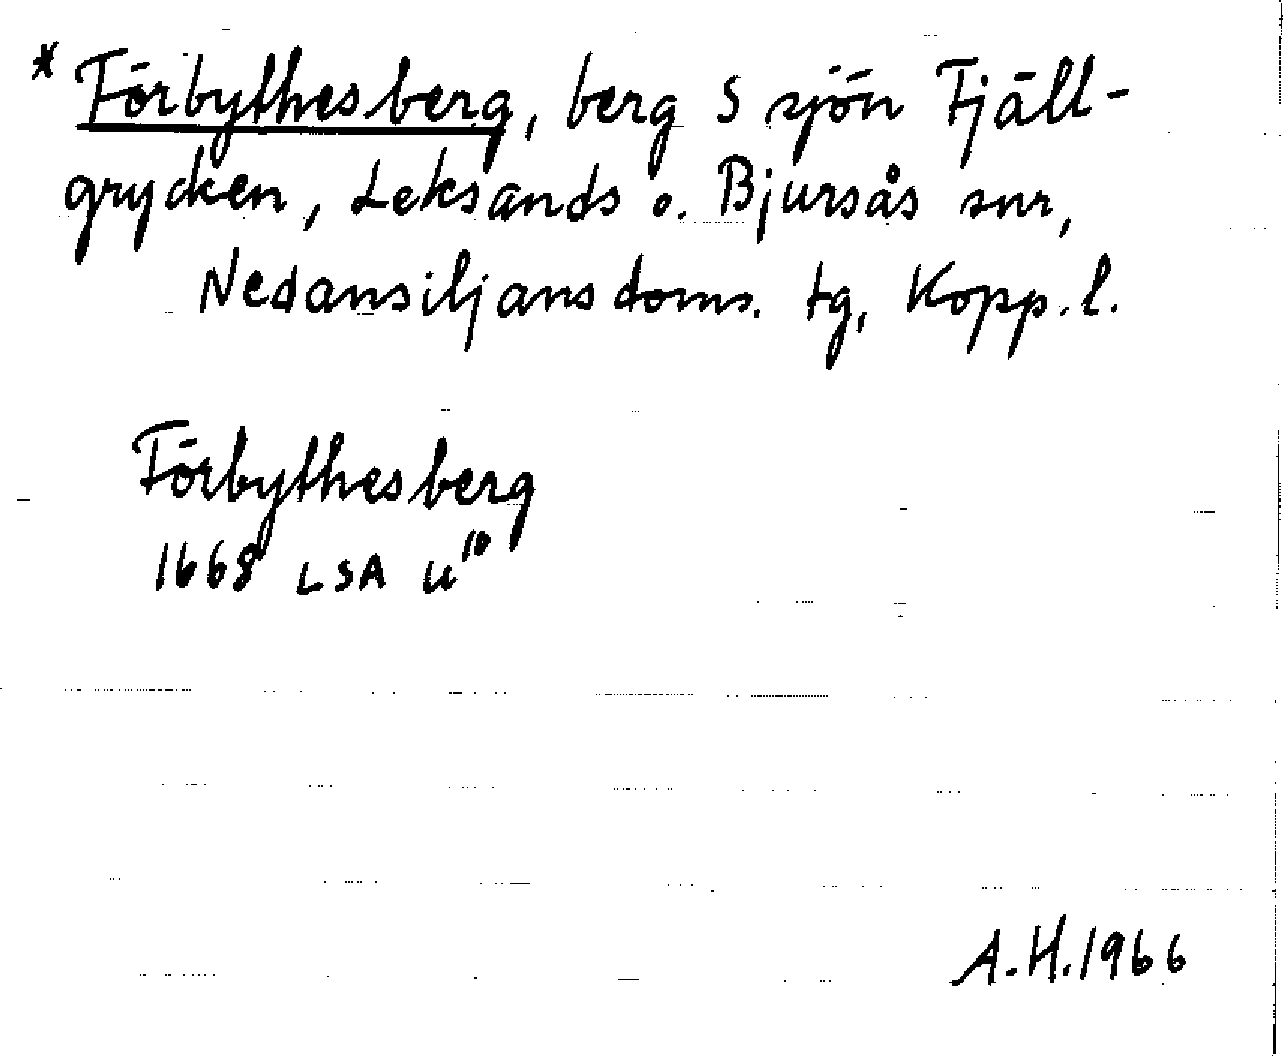 * Förbythesberg, berg S sjön Fjäll-
grycken, Leksands o. Bjursås snr,
Nedansiljans doms. tg, Kopp. l.
Förbythesberg
1668 LSA U¹⁰
A.H. 1966